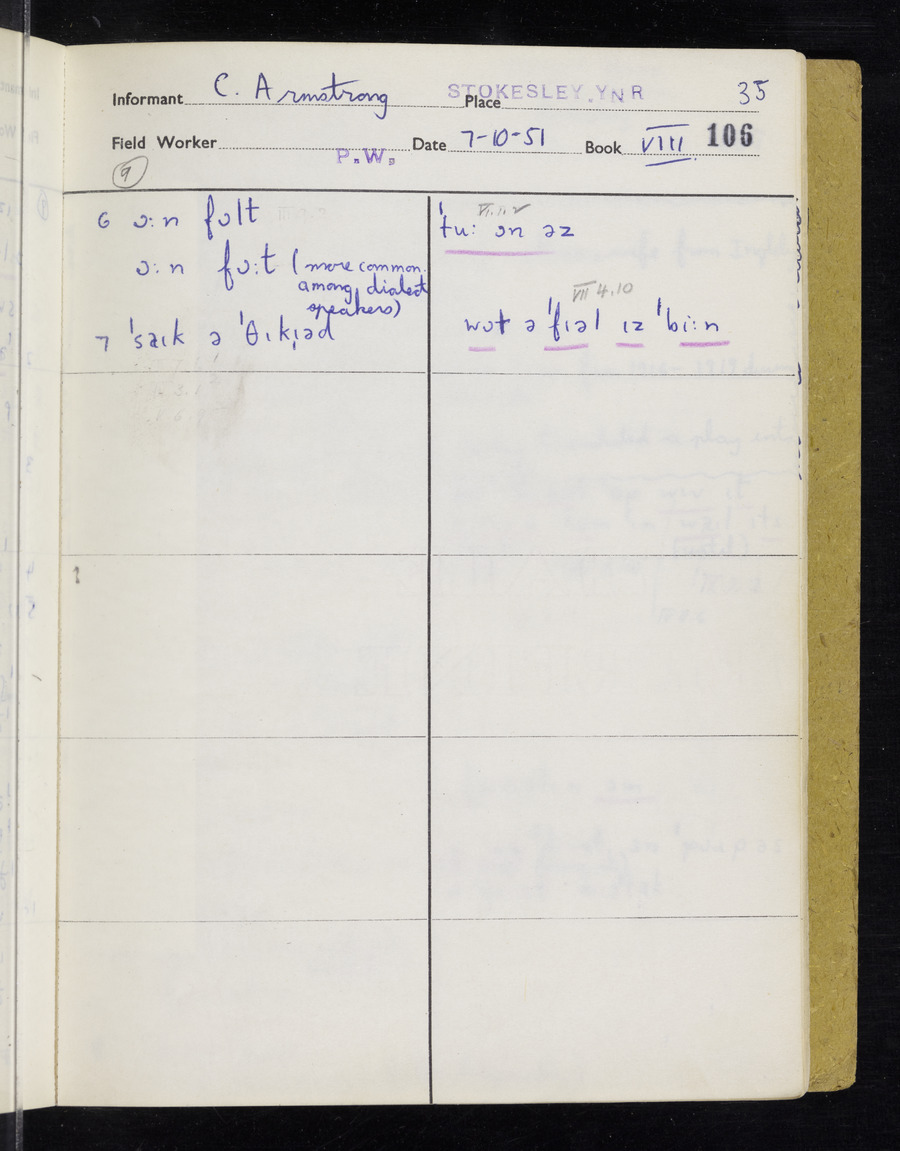 Informant C. Armstrong Place STOKESLEY. YNR 35
Field Worker P.W. Date 7-10-51 Book VIII 106
9
6 ɔ:n fɔlt
ɔ:n fɔ:t (more common
among dialect
speakers)
7 ˈsaɪk ə ˈθɪkɪəd
VI.11.2
ˈtu: ɔn əz
VII 4.10
wɒt ə ˈfɪəl ɪz ˈbi:n